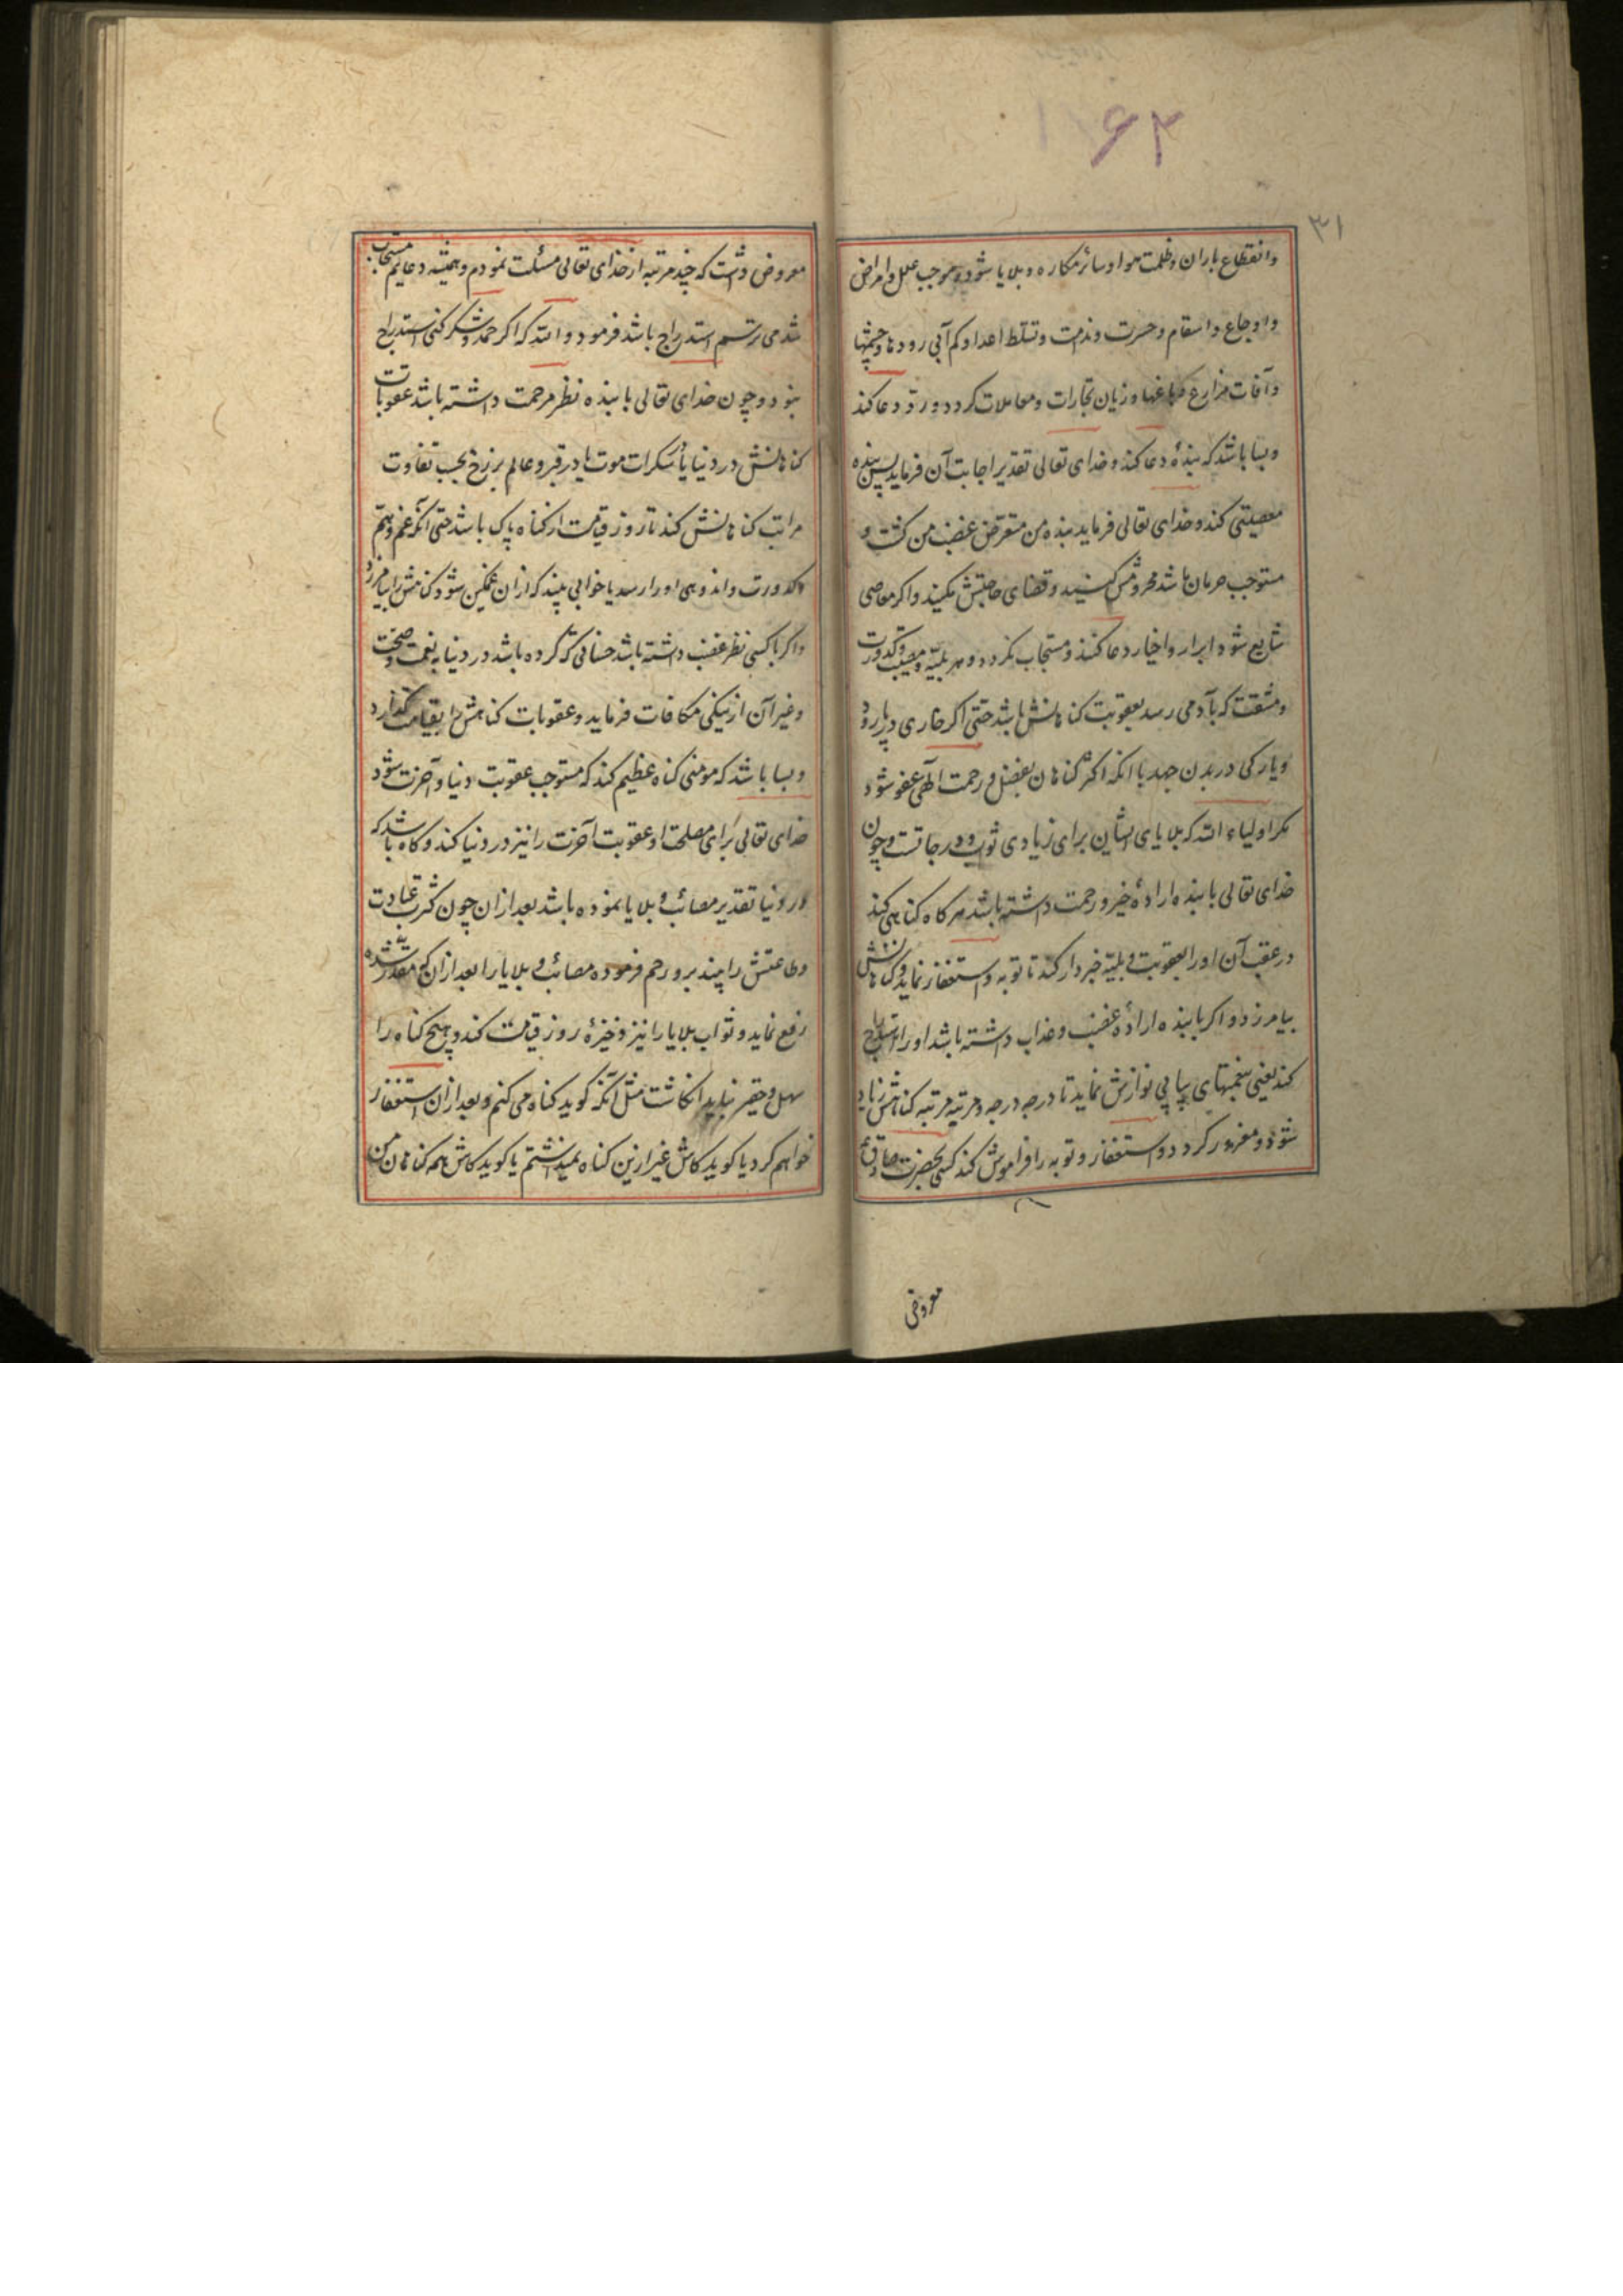 ۶۲
۳۱
وانقطاع باران وظلمت هوا وسائر مکاره وبلایا شود وموجب علل وامراض
واوجاع واسقام وحسرت وندامت وتسلط اعدا وکم آبی رودها وچشمها
وآفات مزارع وباغها وزیان تجارات ومعاملات کردد ورد دعا کند
وبسا باشد که بندهٔ دعا کند وخدای تعالی تقدیر اجابت آن فرماید پس بنده
معصیتی کند وخدای تعالی فرماید بنده من متعرض غضب من کشت و
مستوجب حرمان باشد محرومش کنید وقضای حاجتش مکنید واکر معاصی
شایع شود ابرار واخیار دعا کنند ومستجاب نکردد وهر بلیّه ومصیبت وکدورت
ومشقت که بآدمی رسد بعقوبت کناهانش باشد حتی اکر خاری در پا رود
ویا رکی در بدن جهد با انکه اکثر کناهان بفضل ورحمت الهی عفو شود
مکر اولیاء الله که بلایای ایشان برای زیادی ثواب ودرجاتست وچون
خدای تعالی با بنده ارادهٔ خیر ورحمت داشته باشد هر کاه کناهی کند
در عقب آن اورا بعقوبت وبلیّه خبردار کند تا توبه واستغفار نماید وکناهانش
بیامرزد واکر با بنده ارادهٔ غضب وعذاب داشته باشد اورا استدراج
کند یعنی بنعمتهای پیاپی نوازش نماید تا درجه درجه ومرتبه مرتبه کناهش زیاد
شود ومغرور کردد واستغفار وتوبه را فراموش کند کسی بحضرت صادق ع
معروض
معروض داشت که چند مرتبه از خدای تعالی مسئلت نمودم وهمیشه دعایم مستجاب
شد می ترسم استدراج باشد فرمود والله که اکر حمد وشکر کنی استدراج
نبود وچون خدای تعالی با بنده نظر مرحمت داشته باشد عقوبات
کناهانش در دنیا یا در سکرات موت یا در قبر وعالم برزخ بحسب تفاوت
مراتب کناهانش کند تا روز قیامت از کناه پاک باشد حتی آنکه غم وهم
وکدورت واندوهی اورا رسد یا خوابی بیند که ازان غمکین شود کناهش را بیامرزد
واکر با کسی نظر غضب داشته باشد حسناتی که کرده باشد در دنیا به نعمت وصحت
وغیر آن از نیکی مکافات فرماید وعقوبات کناهش را بقیامت کذارد
وبسا باشد که مومنی کناه عظیم کند که مستوجب عقوبت دنیا وآخرت شود
خدای تعالی برای مصلحت او عقوبت آخرت را نیز در دنیا کند وکاه باشد که
در دنیا تقدیر مصائب وبلایا نموده باشد بعد ازان چون کثرت عبادت
وطاعتش را بیند برو رحم فرموده مصائب وبلایا را بعد ازان که مقدّر شده
رفع نماید وثواب بلایا را نیز ذخیرهٔ روز قیامت کند وهیچ کناه را
سهل وحقیر نباید انکاشت مثل آنکه کوید کناه می کنم وبعد ازان استغفار
خواهم کرد یا کوید کاش غیر ازین کناه نمیداشتم یا کوید کاش همه کناهان من